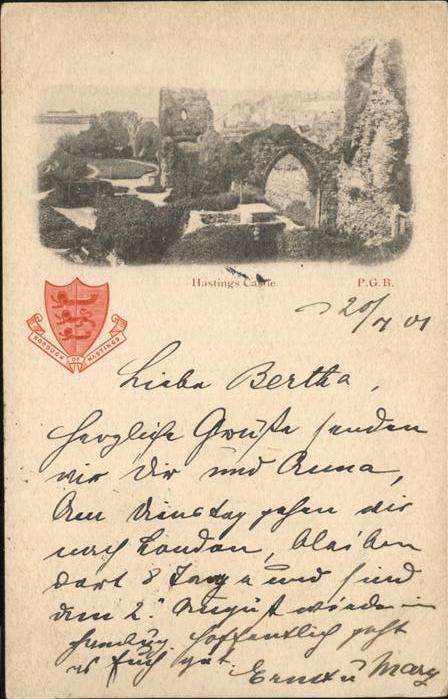 Hastings Castle.
P.G.B.
BOROUGH OF HASTINGS
20/7 01
Liebe Bertha,
herzliche Grüße senden
wir Dir und Anna,
Am Dienstag gehen wir
nach London, bleiben
dort 8 Tage und sind
am 2. August wieder in
Hamburg, hoffentlich geht
es Euch gut.
Ernst u Mary